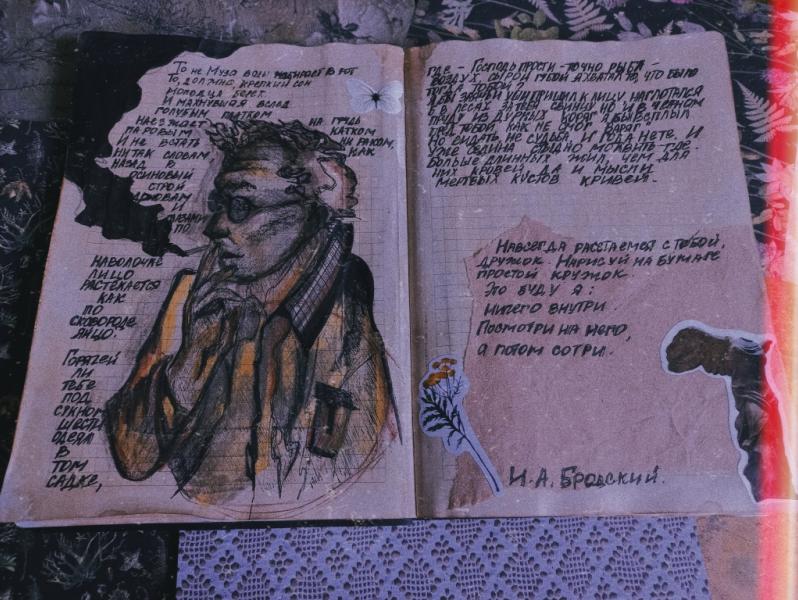 То не Муза воды набирает в рот
То, должно, крепкий сон
молодца берет.
И махнувшая вслед
голубым платком
наезжает на грудь
паровым катком
И не встать ни раком,
ни так словам как
назад в
осиновый
строй
дровам
и
глазами
по
наволочке
лицо
растекается
как
по
сковороде
яйцо.
Горячей
ли
тебе
под
сукном
шести
одеял
в
том
садке,
где - Господь прости - точно рыба -
воздух, сырой губой я хватал то, что было
тогда тобой.
Я бы заячьи уши пришил к лицу наглотался
б в лесах за тебя свинцу но и в черном
пруду из дурных коряг я бы всплыл
пред тобой, как не смог Варяг
Но видать не судьба и года не те. И
уже седина стыдно молвить где.
Больше длинных жил, чем для
них кровей да и мысли
мертвых кустов кривей.
Навсегда расстаемся с тобой,
дружок. Нарисуй на бумаге
простой кружок.
Это буду я:
ничего внутри.
Посмотри на него,
а потом сотри.
И.А. Бродский.